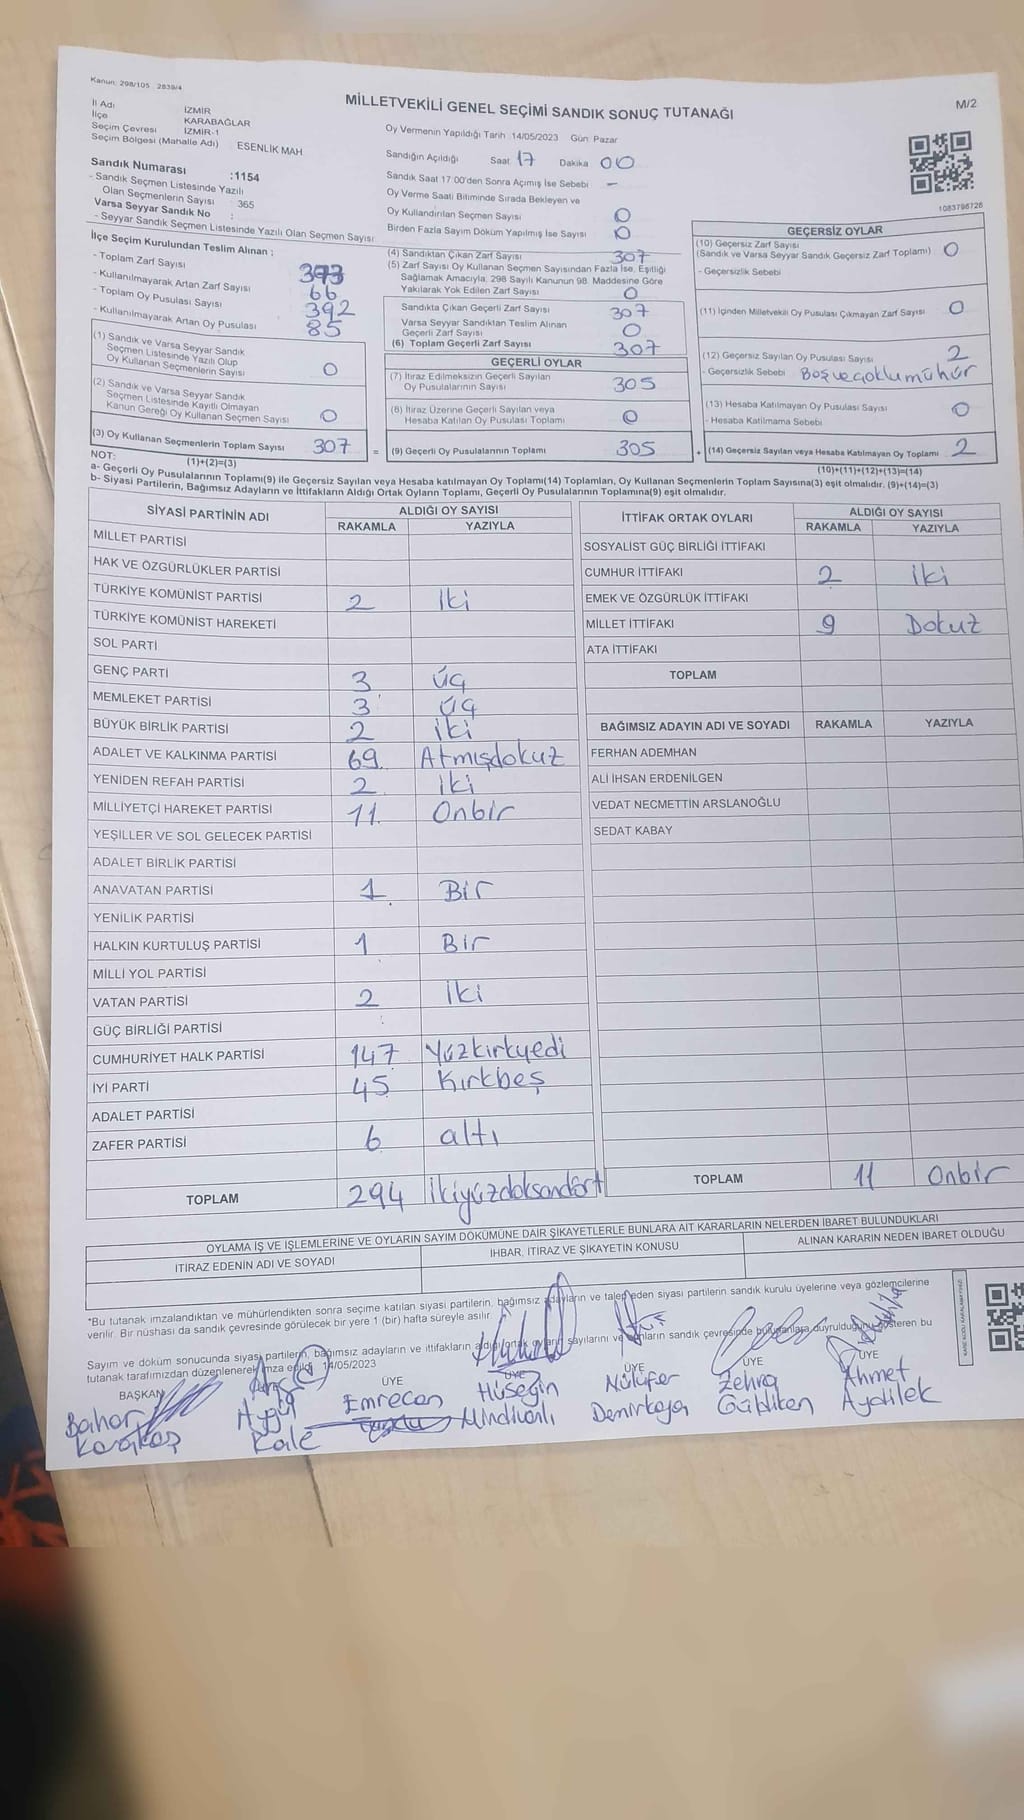 Kanun: 298/105 2839/4
MİLLETVEKİLİ GENEL SEÇİMİ SANDIK SONUÇ TUTANAĞI
M/2
İl Adı İZMİR
İlçe KARABAĞLAR
Seçim Çevresi İZMİR-1
Seçim Bölgesi (Mahalle Adı) ESENLİK MAH
Sandık Numarası :1154
- Sandık Seçmen Listesinde Yazılı
Olan Seçmenlerin Sayısı : 365
Varsa Seyyar Sandık No :
- Seyyar Sandık Seçmen Listesinde Yazılı Olan Seçmen Sayısı
Oy Vermenin Yapıldığı Tarih :14/05/2023 Gün: Pazar
Sandığın Açıldığı Saat 17 Dakika 00
Sandık Saat 17:00'den Sonra Açımış İse Sebebi -
Oy Verme Saati Bitiminde Sırada Bekleyen ve
Oy Kullandırılan Seçmen Sayısı 0
Birden Fazla Sayım Döküm Yapılmış İse Sayısı 0
1083796726
İlçe Seçim Kurulundan Teslim Alınan :
- Toplam Zarf Sayısı 373
- Kullanılmayarak Artan Zarf Sayısı 66
- Toplam Oy Pusulası Sayısı 392
- Kullanılmayarak Artan Oy Pusulası 85
(1) Sandık ve Varsa Seyyar Sandık
Seçmen Listesinde Yazılı Olup
Oy Kullanan Seçmenlerin Sayısı 0
(2) Sandık ve Varsa Seyyar Sandık
Seçmen Listesinde Kayıtlı Olmayan
Kanun Gereği Oy Kullanan Seçmen Sayısı 0
(3) Oy Kullanan Seçmenlerin Toplam Sayısı 307
(1)+(2)=(3)
(4) Sandıktan Çıkan Zarf Sayısı 307
(5) Zarf Sayısı Oy Kullanan Seçmen Sayısından Fazla İse, Eşitliği
Sağlamak Amacıyla; 298 Sayılı Kanunun 98. Maddesine Göre
Yakılarak Yok Edilen Zarf Sayısı 0
Sandıkta Çıkan Geçerli Zarf Sayısı 307
Varsa Seyyar Sandıktan Teslim Alınan
Geçerli Zarf Sayısı 0
(6) Toplam Geçerli Zarf Sayısı 307
GEÇERLİ OYLAR
(7) İtiraz Edilmeksizin Geçerli Sayılan
Oy Pusulalarının Sayısı 305
(8) İtiraz Üzerine Geçerli Sayılan veya
Hesaba Katılan Oy Pusulası Toplamı 0
= (9) Geçerli Oy Pusulalarının Toplamı 305
GEÇERSİZ OYLAR
(10) Geçersiz Zarf Sayısı
(Sandık ve Varsa Seyyar Sandık Geçersiz Zarf Toplamı) 0
- Geçersizlik Sebebi
(11) İçinden Milletvekili Oy Pusulası Çıkmayan Zarf Sayısı 0
(12) Geçersiz Sayılan Oy Pusulası Sayısı 2
- Geçersizlik Sebebi Boş ve çoklu mühür
(13) Hesaba Katılmayan Oy Pusulası Sayısı 0
- Hesaba Katılmama Sebebi
+ (14) Geçersiz Sayılan veya Hesaba Katılmayan Oy Toplamı 2
(10)+(11)+(12)+(13)=(14)
NOT:
a- Geçerli Oy Pusulalarının Toplamı(9) ile Geçersiz Sayılan veya Hesaba katılmayan Oy Toplamı(14) Toplamları, Oy Kullanan Seçmenlerin Toplam Sayısına(3) eşit olmalıdır. (9)+(14)=(3)
b- Siyasi Partilerin, Bağımsız Adayların ve İttifakların Aldığı Ortak Oyların Toplamı, Geçerli Oy Pusulalarının Toplamına(9) eşit olmalıdır.
SİYASİ PARTİNİN ADI ALDIĞI OY SAYISI
RAKAMLA YAZIYLA
MİLLET PARTİSİ
HAK VE ÖZGÜRLÜKLER PARTİSİ
TÜRKİYE KOMÜNİST PARTİSİ 2 iki
TÜRKİYE KOMÜNİST HAREKETİ
SOL PARTİ
GENÇ PARTİ 3 üç
MEMLEKET PARTİSİ 3 üç
BÜYÜK BİRLİK PARTİSİ 2 iki
ADALET VE KALKINMA PARTİSİ 69 Atmışdokuz
YENİDEN REFAH PARTİSİ 2 iki
MİLLİYETÇİ HAREKET PARTİSİ 11 Onbir
YEŞİLLER VE SOL GELECEK PARTİSİ
ADALET BİRLİK PARTİSİ
ANAVATAN PARTİSİ 1 Bir
YENİLİK PARTİSİ
HALKIN KURTULUŞ PARTİSİ 1 Bir
MİLLİ YOL PARTİSİ
VATAN PARTİSİ 2 iki
GÜÇ BİRLİĞİ PARTİSİ
CUMHURİYET HALK PARTİSİ 147 Yüzkırkyedi
İYİ PARTİ 45 Kırkbeş
ADALET PARTİSİ
ZAFER PARTİSİ 6 altı
TOPLAM 294 ikiyüzdoksandört
İTTİFAK ORTAK OYLARI ALDIĞI OY SAYISI
RAKAMLA YAZIYLA
SOSYALİST GÜÇ BİRLİĞİ İTTİFAKI
CUMHUR İTTİFAKI 2 iki
EMEK VE ÖZGÜRLÜK İTTİFAKI
MİLLET İTTİFAKI 9 Dokuz
ATA İTTİFAKI
TOPLAM
BAĞIMSIZ ADAYIN ADI VE SOYADI RAKAMLA YAZIYLA
FERHAN ADEMHAN
ALİ İHSAN ERDENİLGEN
VEDAT NECMETTİN ARSLANOĞLU
SEDAT KABAY
TOPLAM 11 Onbir
OYLAMA İŞ VE İŞLEMLERİNE VE OYLARIN SAYIM DÖKÜMÜNE DAİR ŞİKAYETLERLE BUNLARA AİT KARARLARIN NELERDEN İBARET BULUNDUKLARI
İTİRAZ EDENİN ADI VE SOYADI İHBAR, İTİRAZ VE ŞİKAYETİN KONUSU ALINAN KARARIN NEDEN İBARET OLDUĞU
*Bu tutanak imzalandıktan ve mühürlendikten sonra seçime katılan siyasi partilerin, bağımsız adayların ve talep eden siyasi partilerin sandık kurulu üyelerine veya gözlemcilerine
verilir. Bir nüshası da sandık çevresinde görülecek bir yere 1 (bir) hafta süreyle asılır.
Sayım ve döküm sonucunda siyasi partilerin, bağımsız adayların ve ittifakların aldığı ortak oyların sayılarını ve bunların sandık çevresinde bulunanlara duyrulduğunu gösteren bu
tutanak tarafımızdan düzenlenerek imza edildi. 14/05/2023
BAŞKAN ÜYE ÜYE ÜYE ÜYE ÜYE
Bahar Aygül Emrecan Hüseyin Nülüfer Zehra Ahmet
Karakaş Kale Mindivanlı Demirkaya Güldiken Aydilek